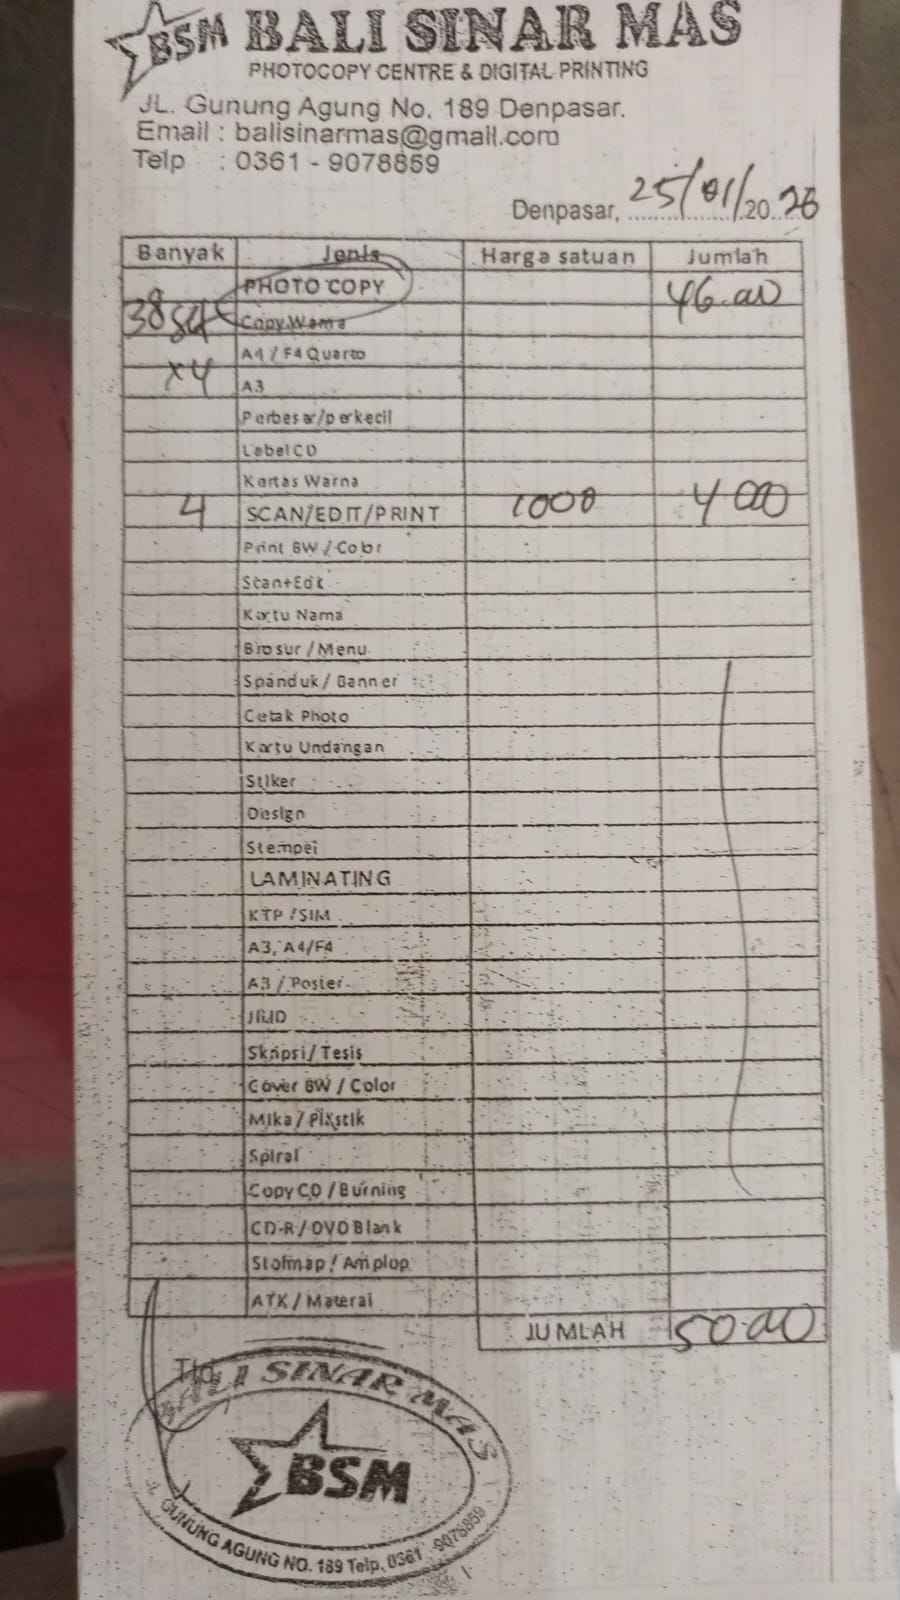 BSM BALI SINAR MAS
PHOTOCOPY CENTRE & DIGITAL PRINTING
JL. Gunung Agung No. 189 Denpasar.
Email : balisinarmas@gmail.com
Telp : 0361 - 9078859
Denpasar, 25/01/2026
Banyak Jenis Harga satuan Jumlah
PHOTO COPY 46.000
38 set Copy Warna
A4 / F4 Quarto
x4 A3
Perbesar/perkecil
Label CD
Kertas Warna
4 SCAN/EDIT/PRINT 1000 4000
Print BW / Color
Scan+Edit
Kartu Nama
Brosur / Menu
Spanduk / Banner
Cetak Photo
Kartu Undangan
Stiker
Design
Stempel
LAMINATING
KTP / SIM
A3, A4/F4
A3 / Poster
JILID
Skripsi / Tesis
Cover BW / Color
Mika / Plastik
Spiral
Copy CD / Burning
CD-R / DVD Blank
Stofmap / Amplop
ATK / Materai
JUMLAH 50.000
BALI SINAR MAS
BSM
JL. GUNUNG AGUNG NO. 189 Telp. 0361 -9078859